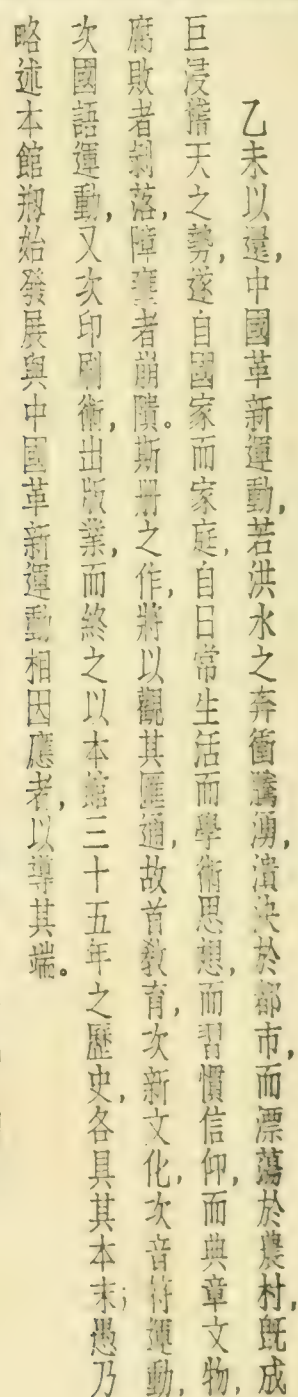 乙未以還,中國革新運動,若洪水之奔衝騰湧,潰決於都市,而漂蕩於農村,旣成
巨浸滔天之勢,遂自國家而家庭,自日常生活而學術思想,而習慣信仰,而典章文物,
腐敗者剝落,障壅者崩隤。斯册之作,將以觀其匯通,故首敎育,次新文化,次音符運動,
次國語運動,又次印刷術,出版業,而終之以本館三十五年之歷史,各具其本末;愚乃
略述本館剏始發展與中國革新運動相因應者,以導其端。